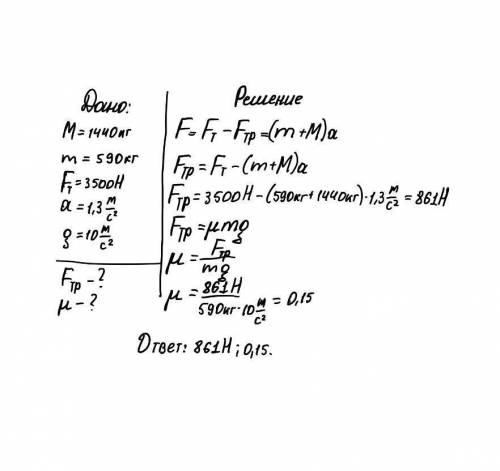 Дано:
M=1440кг
m=590кг
Fт=3500Н
a=1,3 м/с²
g=10 м/с²
Fтр-?
μ-?
Решение
F=Fт-Fтр=(m+M)a
Fтр=Fт-(m+M)a
Fтр=3500Н-(590кг+1440кг)·1,3 м/с²=861Н
Fтр=μmg
μ=Fтр/mg
μ=861Н/590кг·10 м/с²=0,15
Ответ: 861Н; 0,15.